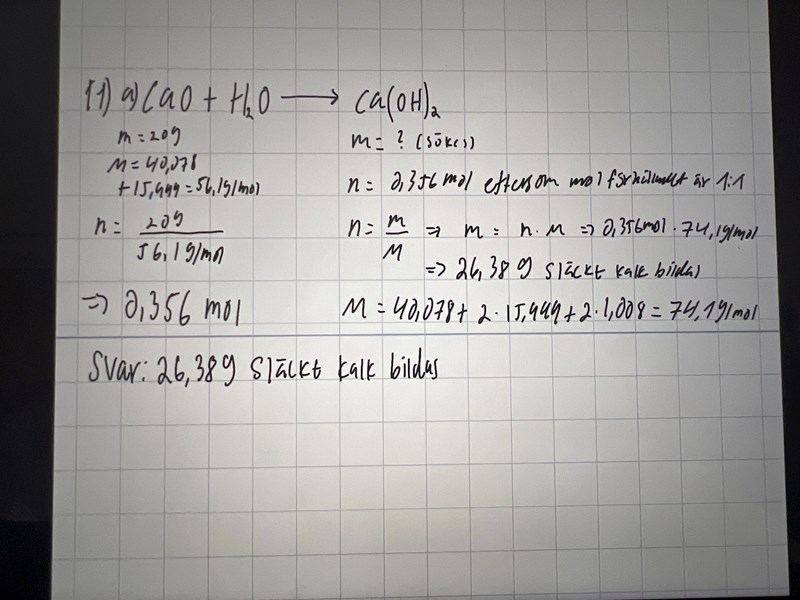 11) a) CaO + H₂O ⟶ Ca(OH)₂
m = 20g
M = 40,078
+ 15,999 = 56,1g/mol
n = 20g / 56,1g/mol
⇒ 0,356 mol
m = ? (sökes)
n = 0,356 mol eftersom molförhållandet är 1:1
n = m / M ⇒ m = n · M ⇒ 0,356mol · 74,1g/mol
⇒ 26,38 g släckt kalk bildas
M = 40,078 + 2 · 15,999 + 2 · 1,008 = 74,1g/mol
Svar: 26,38g släckt kalk bildas